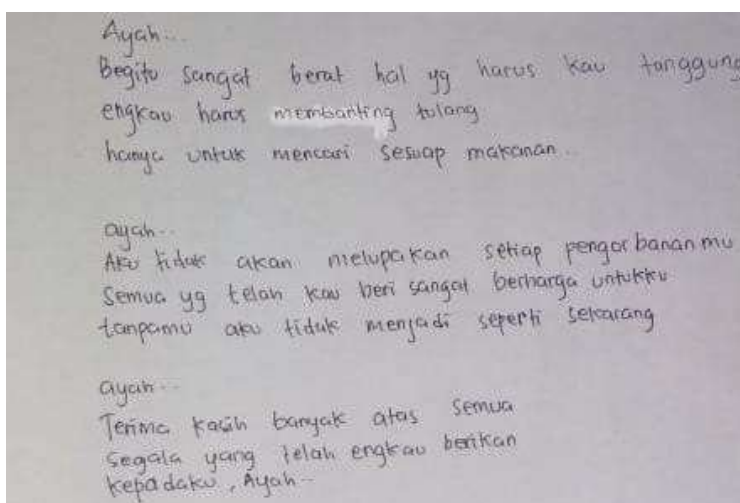 Ayah...
Begitu sangat berat hal yg harus kau tanggung
engkau harus membanting tulang
hanya untuk mencari sesuap makanan..
ayah..
Aku tidak akan melupakan setiap pengorbananmu
Semua yg telah kau beri sangat berharga untukku
tanpamu aku tidak menjadi seperti sekarang
ayah..
Terima kasih banyak atas semua
segala yang telah engkau berikan
kepadaku, Ayah..